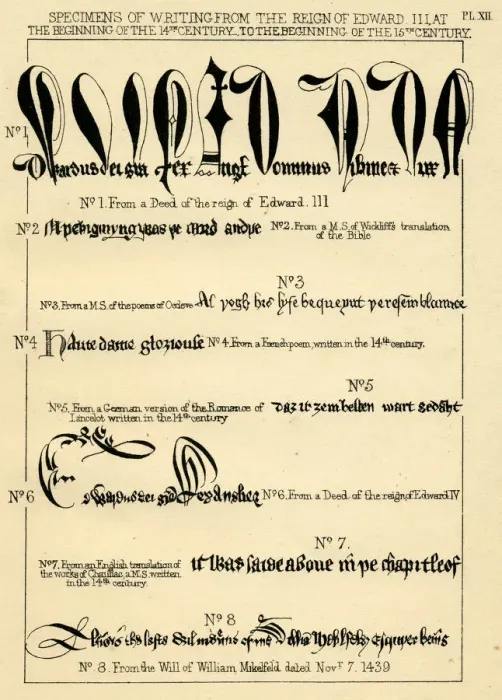 SPECIMENS OF WRITING FROM THE REIGN OF EDWARD III, AT PL. XII
THE BEGINNING OF THE 14TH CENTURY, TO THE BEGINNING OF THE 15TH CENTURY.
No 1
dei gra rex dominus
No 1. From a Deed of the reign of Edward. III
No 2 bigynnyng was þe word and þe No 2. From a M.S. of Wickliff's translation
of the Bible
No 3
No 3. From a M.S. of the poems of Occleve Al þogh his lyfe be queynt þe resemblaunce
No 4 Haute dame gloriouse No 4. From a French poem, written in the 14th century.
No 5
No 5. From a German version of the Romance of daz it zem besten wart gedaht
Lancelot written in the 14th century
No 6 Edwardus dei gra Rex Anglie No 6. From a Deed of the reign of Edward IV
No 7.
No 7. From an English translation of it was saide aboue in þe chapitle of
the works of a M.S. written
in the 14th century.
No 8
this laste Wil of me esquyer
No. 8. From the Will of William Mikelfeld dated Novr 7. 1439